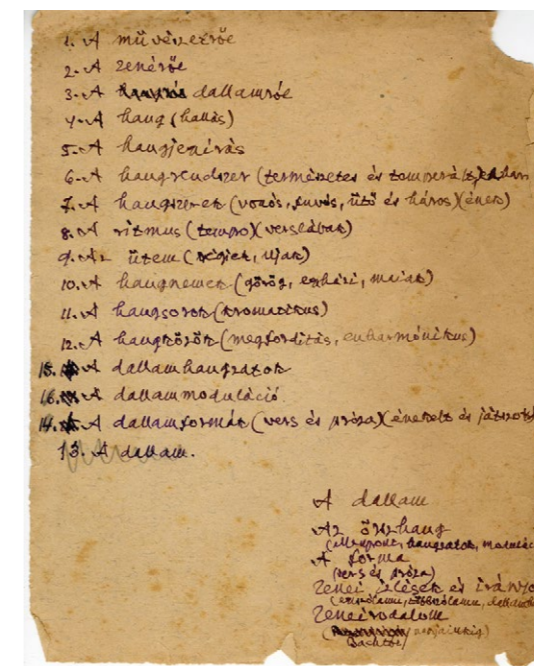 1. A művészetről
2. A zenéről
3. A dallamról
4. A hang (hallás)
5. A hangjegyírás
6. A hangrendszer (természetes és temperált)
7. A hangszerek (vonós, fuvós, ütő és húros) (ének)
8. A ritmus (tempo) (verslábak)
9. Az ütem (régiek, ujak)
10. A hangnemek (görög, egyházi, maiak)
11. A hangsorok (kromatikus)
12. A hangközök (megfordítás, enharmónikus)
15. A dallamhangzatok
16. A dallammoduláció
14. A dallamformák (vers és próza) (énekelt és játszott
13. A dallam.
A dallam
Az összhang
(ellenpont, hangzatok, moduláció
A forma
(vers és próza)
Zenei izlések és irányo
Zeneirodalom
(
napjainkig)
Bachtól